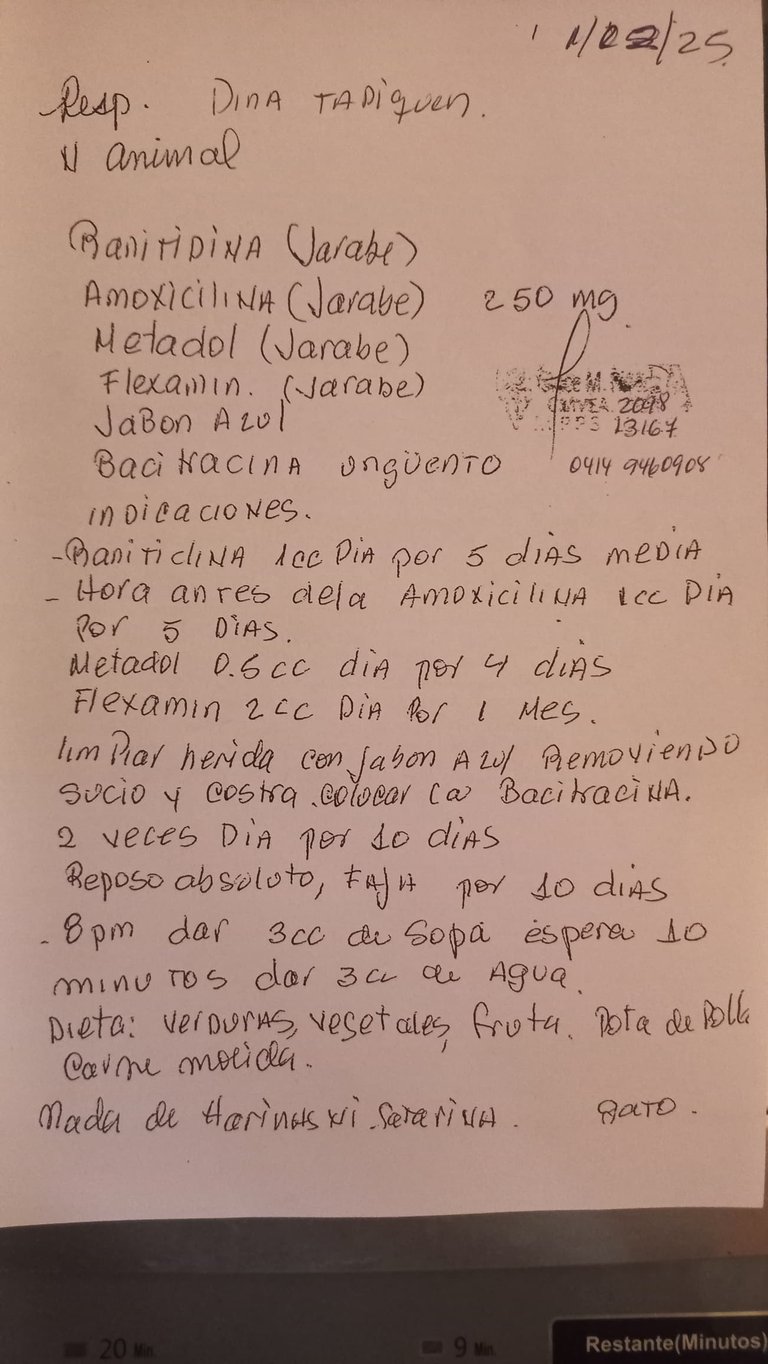 1/02/25
Resp. Dina Tadiquen.
N animal
Ranitidina (Jarabe)
Amoxicilina (Jarabe) 250 mg.
Metadol (Jarabe)
Flexamin. (Jarabe)
Jabon Azul
2098
13167
Bacitracina ungüento 0414 9460908
indicaciones.
-Raniticlina 1cc Dia por 5 dias media
- Hora antes dela Amoxicilina 1cc Dia
Por 5 Dias.
Metadol 0.5cc dia por 4 dias
Flexamin 2cc Dia Por 1 Mes.
limpiar herida con Jabon Azul Removiendo
sucio y costra. colocar la Bacitracina.
2 veces Dia por 10 dias
Reposo absoluto, Faja por 10 dias
- 8pm dar 3cc de Sopa espera 10
minutos dar 3cc de Agua.
Dieta: verduras, vegetales, fruta. Pota de Polla
Carne molida.
Nada de Harinas ni .
20 Min
9 Min
Restante(Minutos)